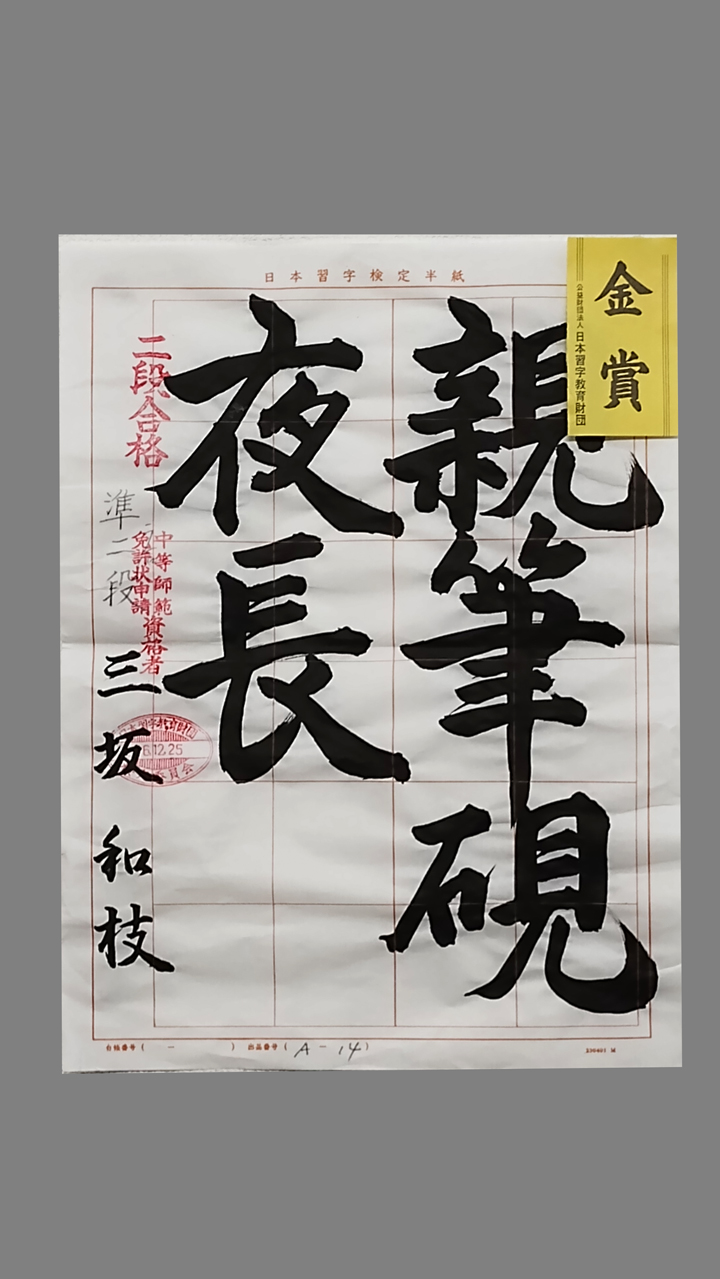 日本習字検定半紙
金賞
公益財団法人 日本習字教育財団
親筆硯
夜長
二段合格
中等師範資格者
免許状申請
準二段
三坂和枝
6.12.25
出品番号( A-14)